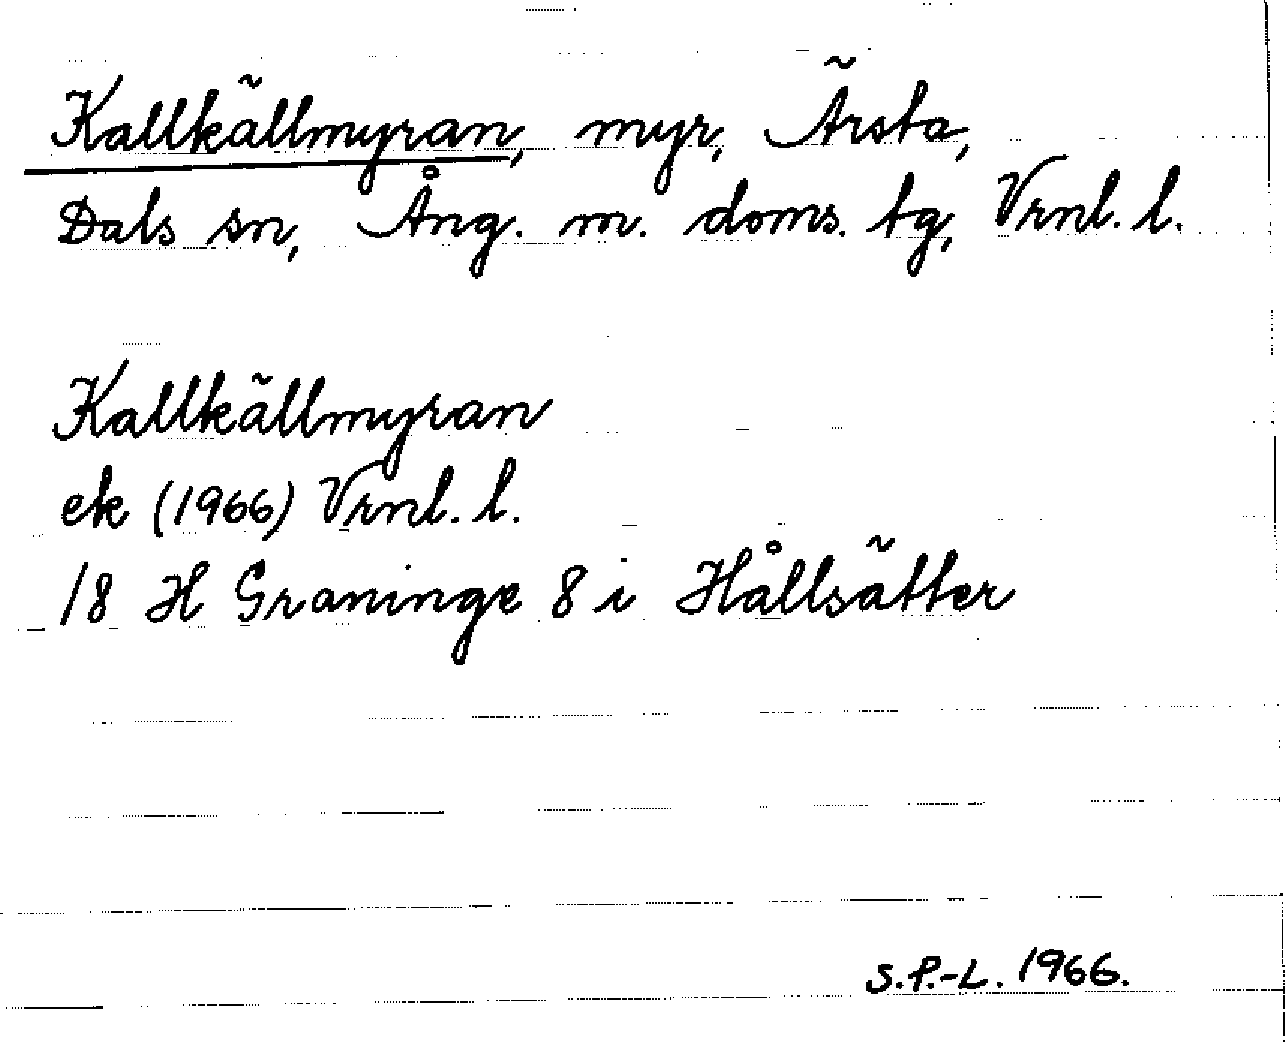 Kallkällmyran, myr, Ärsta,
Dals sn, Ång. m. doms. tg, Vrnl. l.
Kallkällmyran
ek (1966) Vrnl. l.
18 H Graninge 8 i Hållsätter
S.P.-L. 1966.